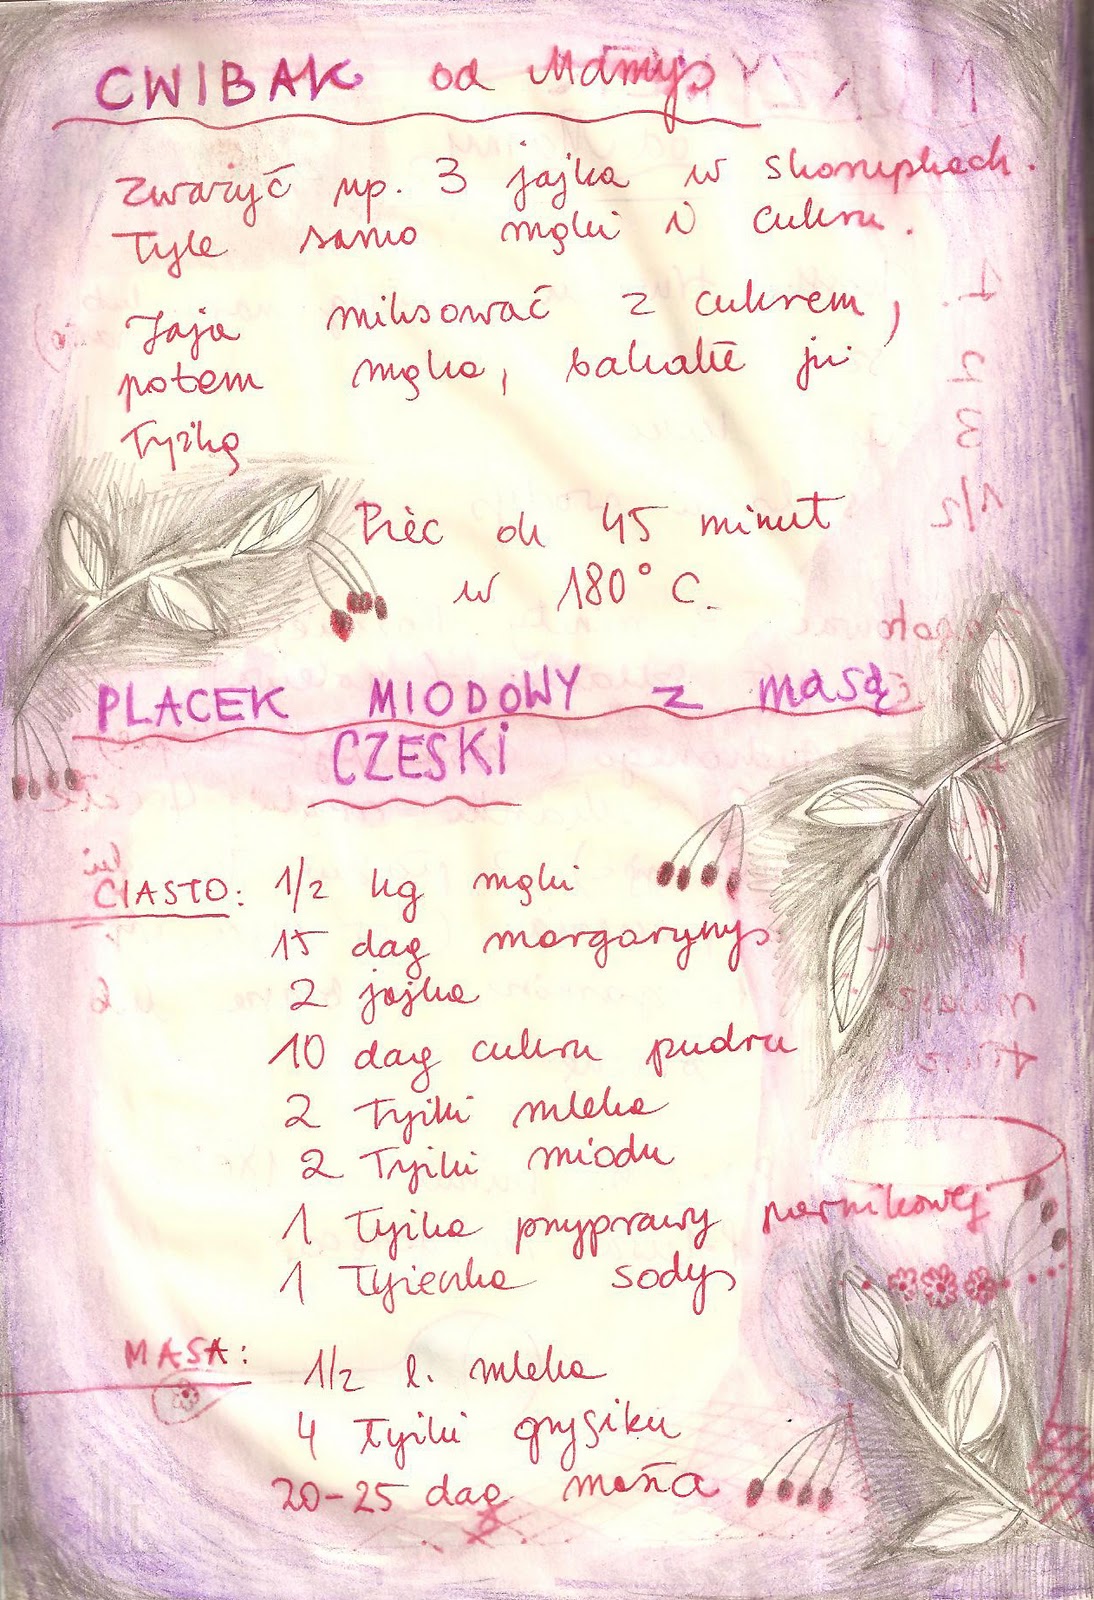 CWIBAK od Mamy
Zważyć np. 3 jajka w skorupkach.
Tyle samo mąki i cukru.
Jaja miksować z cukrem,
potem mąka, bakalie już
łyżką
Piec ok 45 minut
w 180°C.
PLACEK MIODOWY z masą
CZESKI
CIASTO: 1/2 kg mąki
15 dag margaryny
2 jajka
10 dag cukru pudru
2 łyżki mleka
2 łyżki miodu
1 łyżka przyprawy piernikowej
1 łyżeczka sody
MASA: 1/2 l. mleka
4 łyżki grysiku
20-25 dag masła